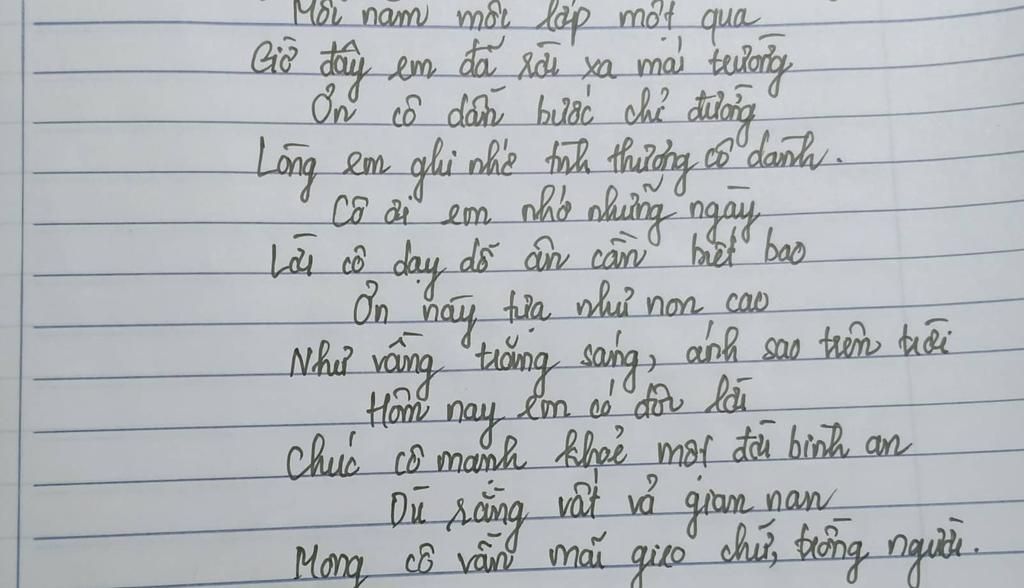 Mỗi năm mỗi lớp một qua
Giờ đây em đã rời xa mái trường
Ơn cô dẫn bước chỉ đường
Lòng em ghi nhớ tình thương cô dành.
Cô ơi em nhớ những ngày
Lời cô dạy dỗ ân cần biết bao
Ơn này tựa như non cao
Như vầng trăng sáng, ánh sao trên trời
Hôm nay em có đôi lời
Chúc cô mạnh khoẻ một đời bình an
Dù rằng vất vả gian nan
Mong cô vẫn mãi gieo chữ, trồng người.